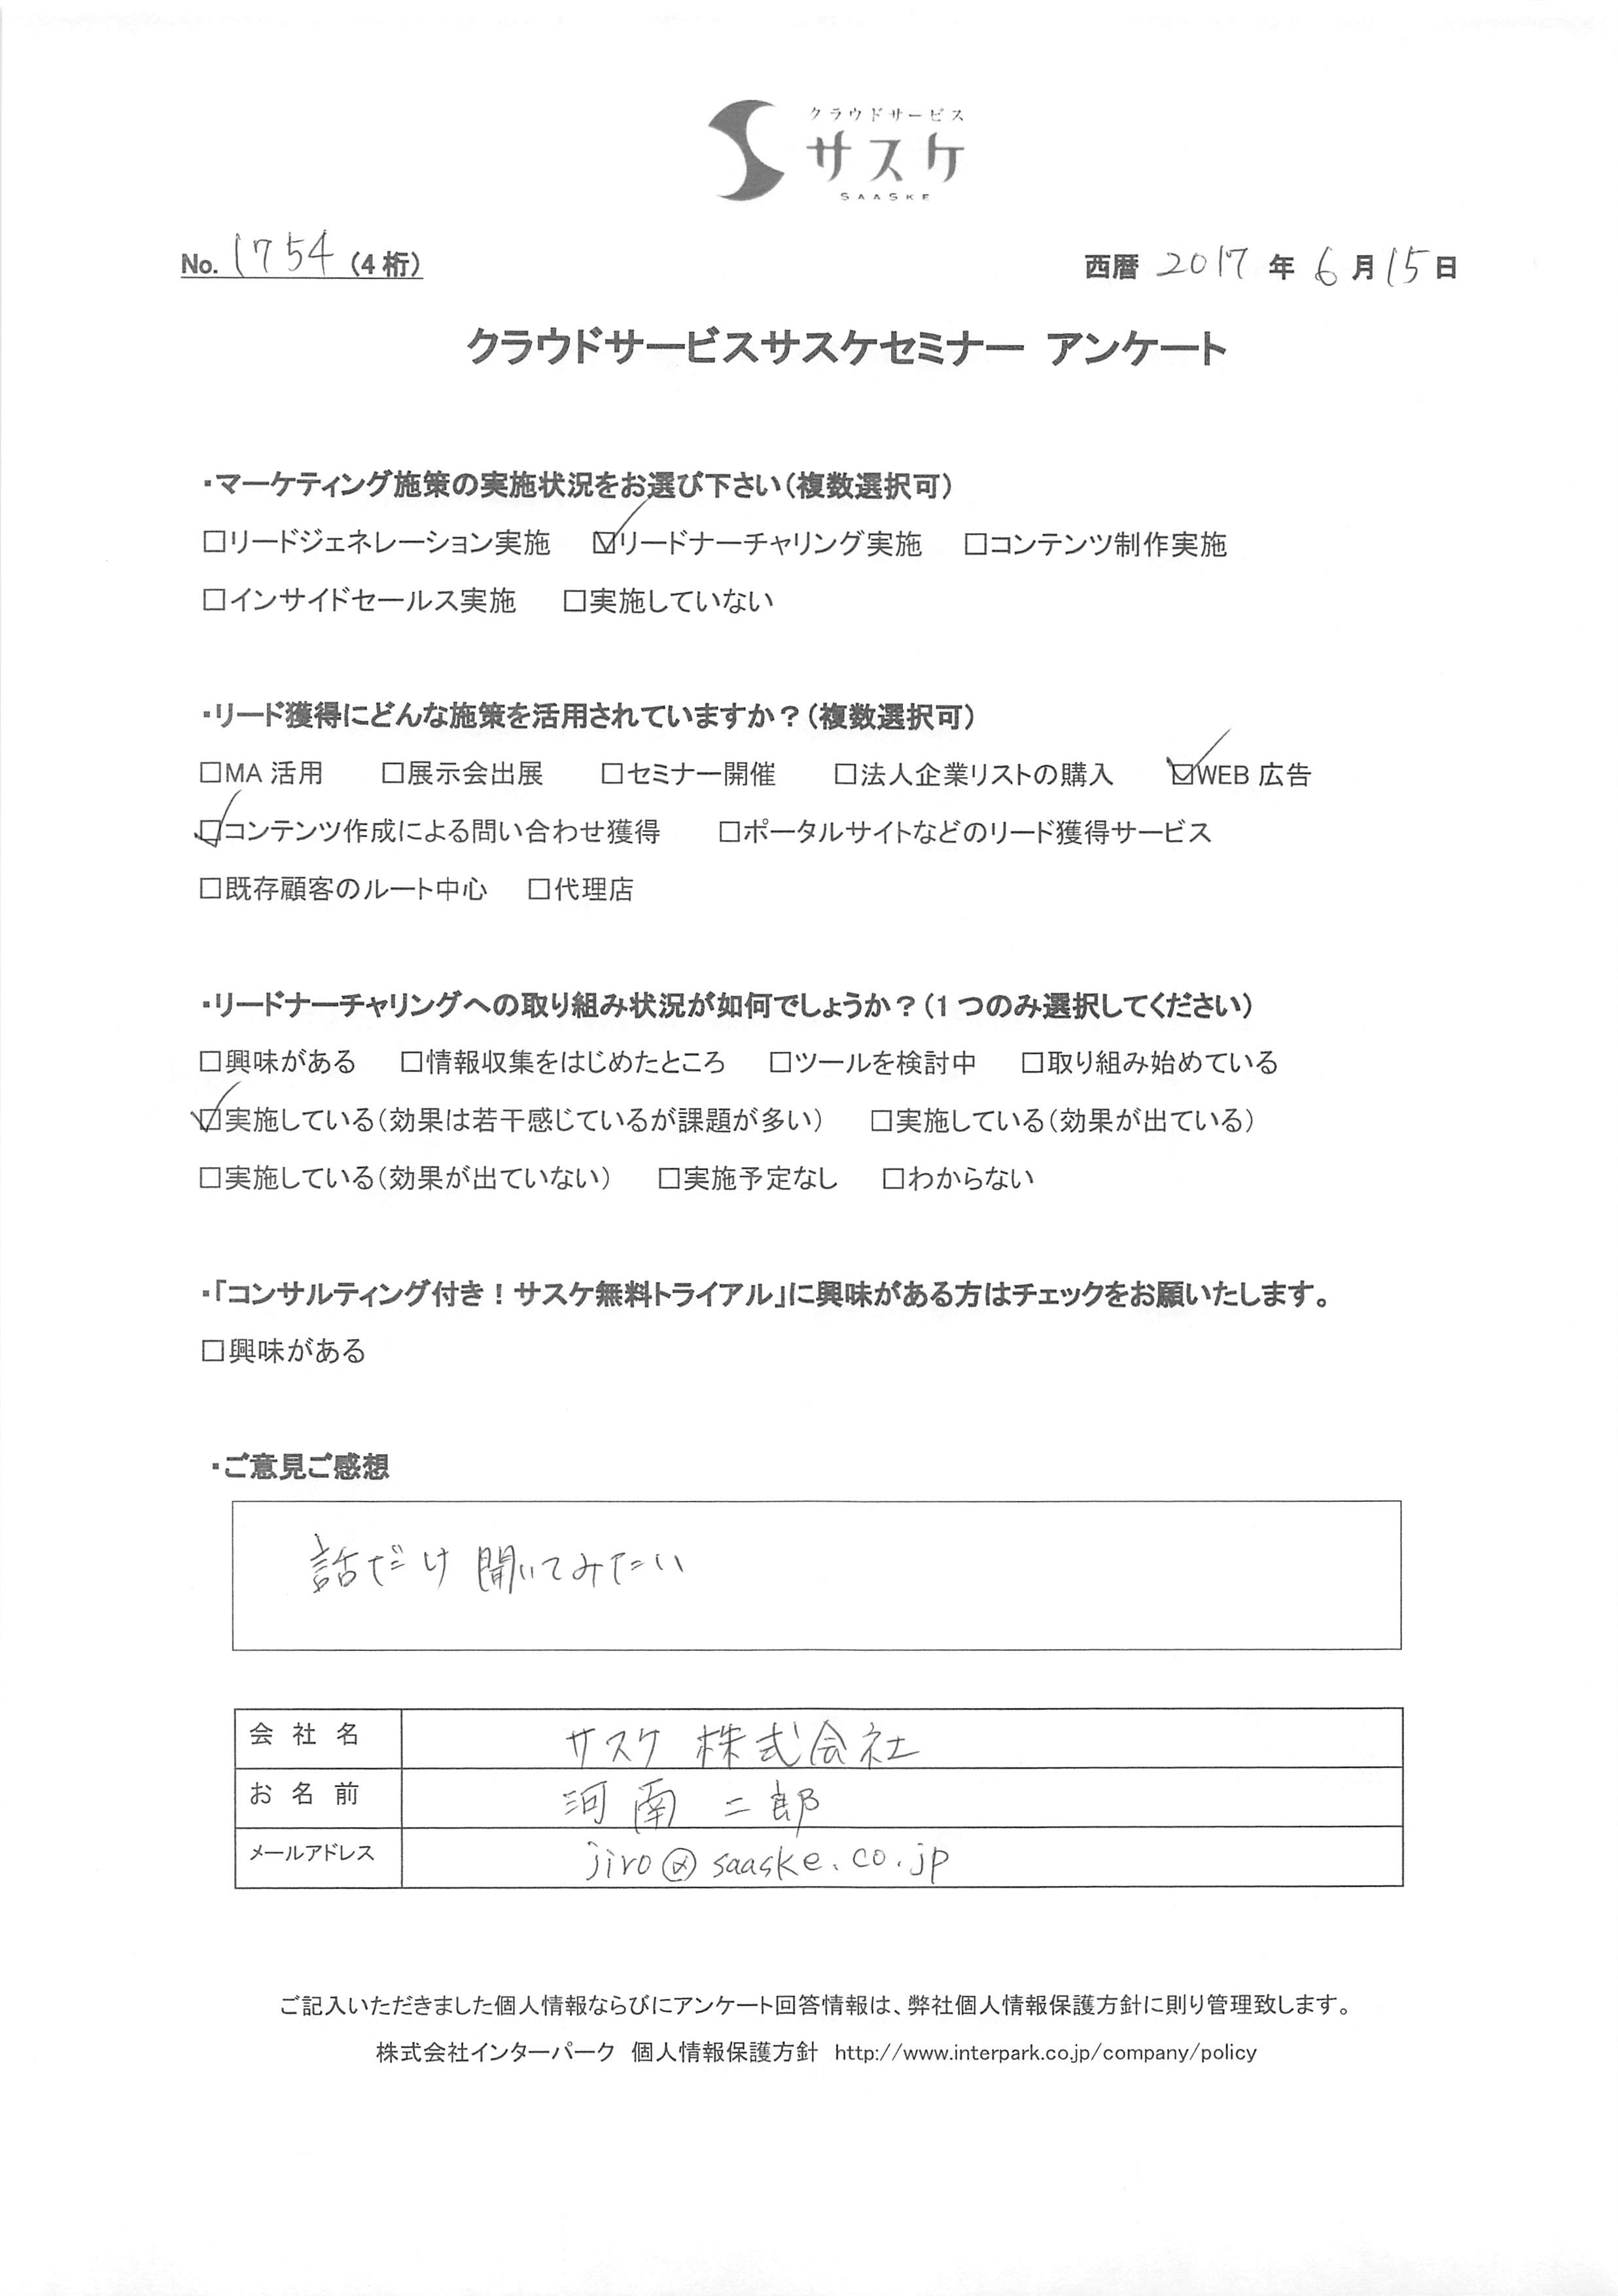 クラウドサービス
サスケ
SAASKE
No. 1754 (4桁)
西暦 2017 年 6 月 15 日
クラウドサービスサスケセミナー アンケート
・マーケティング施策の実施状況をお選び下さい(複数選択可)
□リードジェネレーション実施 ☑リードナーチャリング実施 □コンテンツ制作実施
□インサイドセールス実施 □実施していない
・リード獲得にどんな施策を活用されていますか?(複数選択可)
□MA 活用 □展示会出展 □セミナー開催 □法人企業リストの購入 ☑WEB 広告
☑コンテンツ作成による問い合わせ獲得 □ポータルサイトなどのリード獲得サービス
□既存顧客のルート中心 □代理店
・リードナーチャリングへの取り組み状況が如何でしょうか?(1 つのみ選択してください)
□興味がある □情報収集をはじめたところ □ツールを検討中 □取り組み始めている
☑実施している(効果は若干感じているが課題が多い) □実施している(効果が出ている)
□実施している(効果が出ていない) □実施予定なし □わからない
・「コンサルティング付き!サスケ無料トライアル」に興味がある方はチェックをお願いたします。
□興味がある
・ご意見ご感想
話だけ聞いてみたい
会社名 サスケ 株式会社
お名前 河南 二郎
メールアドレス jiro@saaske.co.jp
ご記入いただきました個人情報ならびにアンケート回答情報は、弊社個人情報保護方針に則り管理致します。
株式会社インターパーク 個人情報保護方針 http://www.interpark.co.jp/company/policy